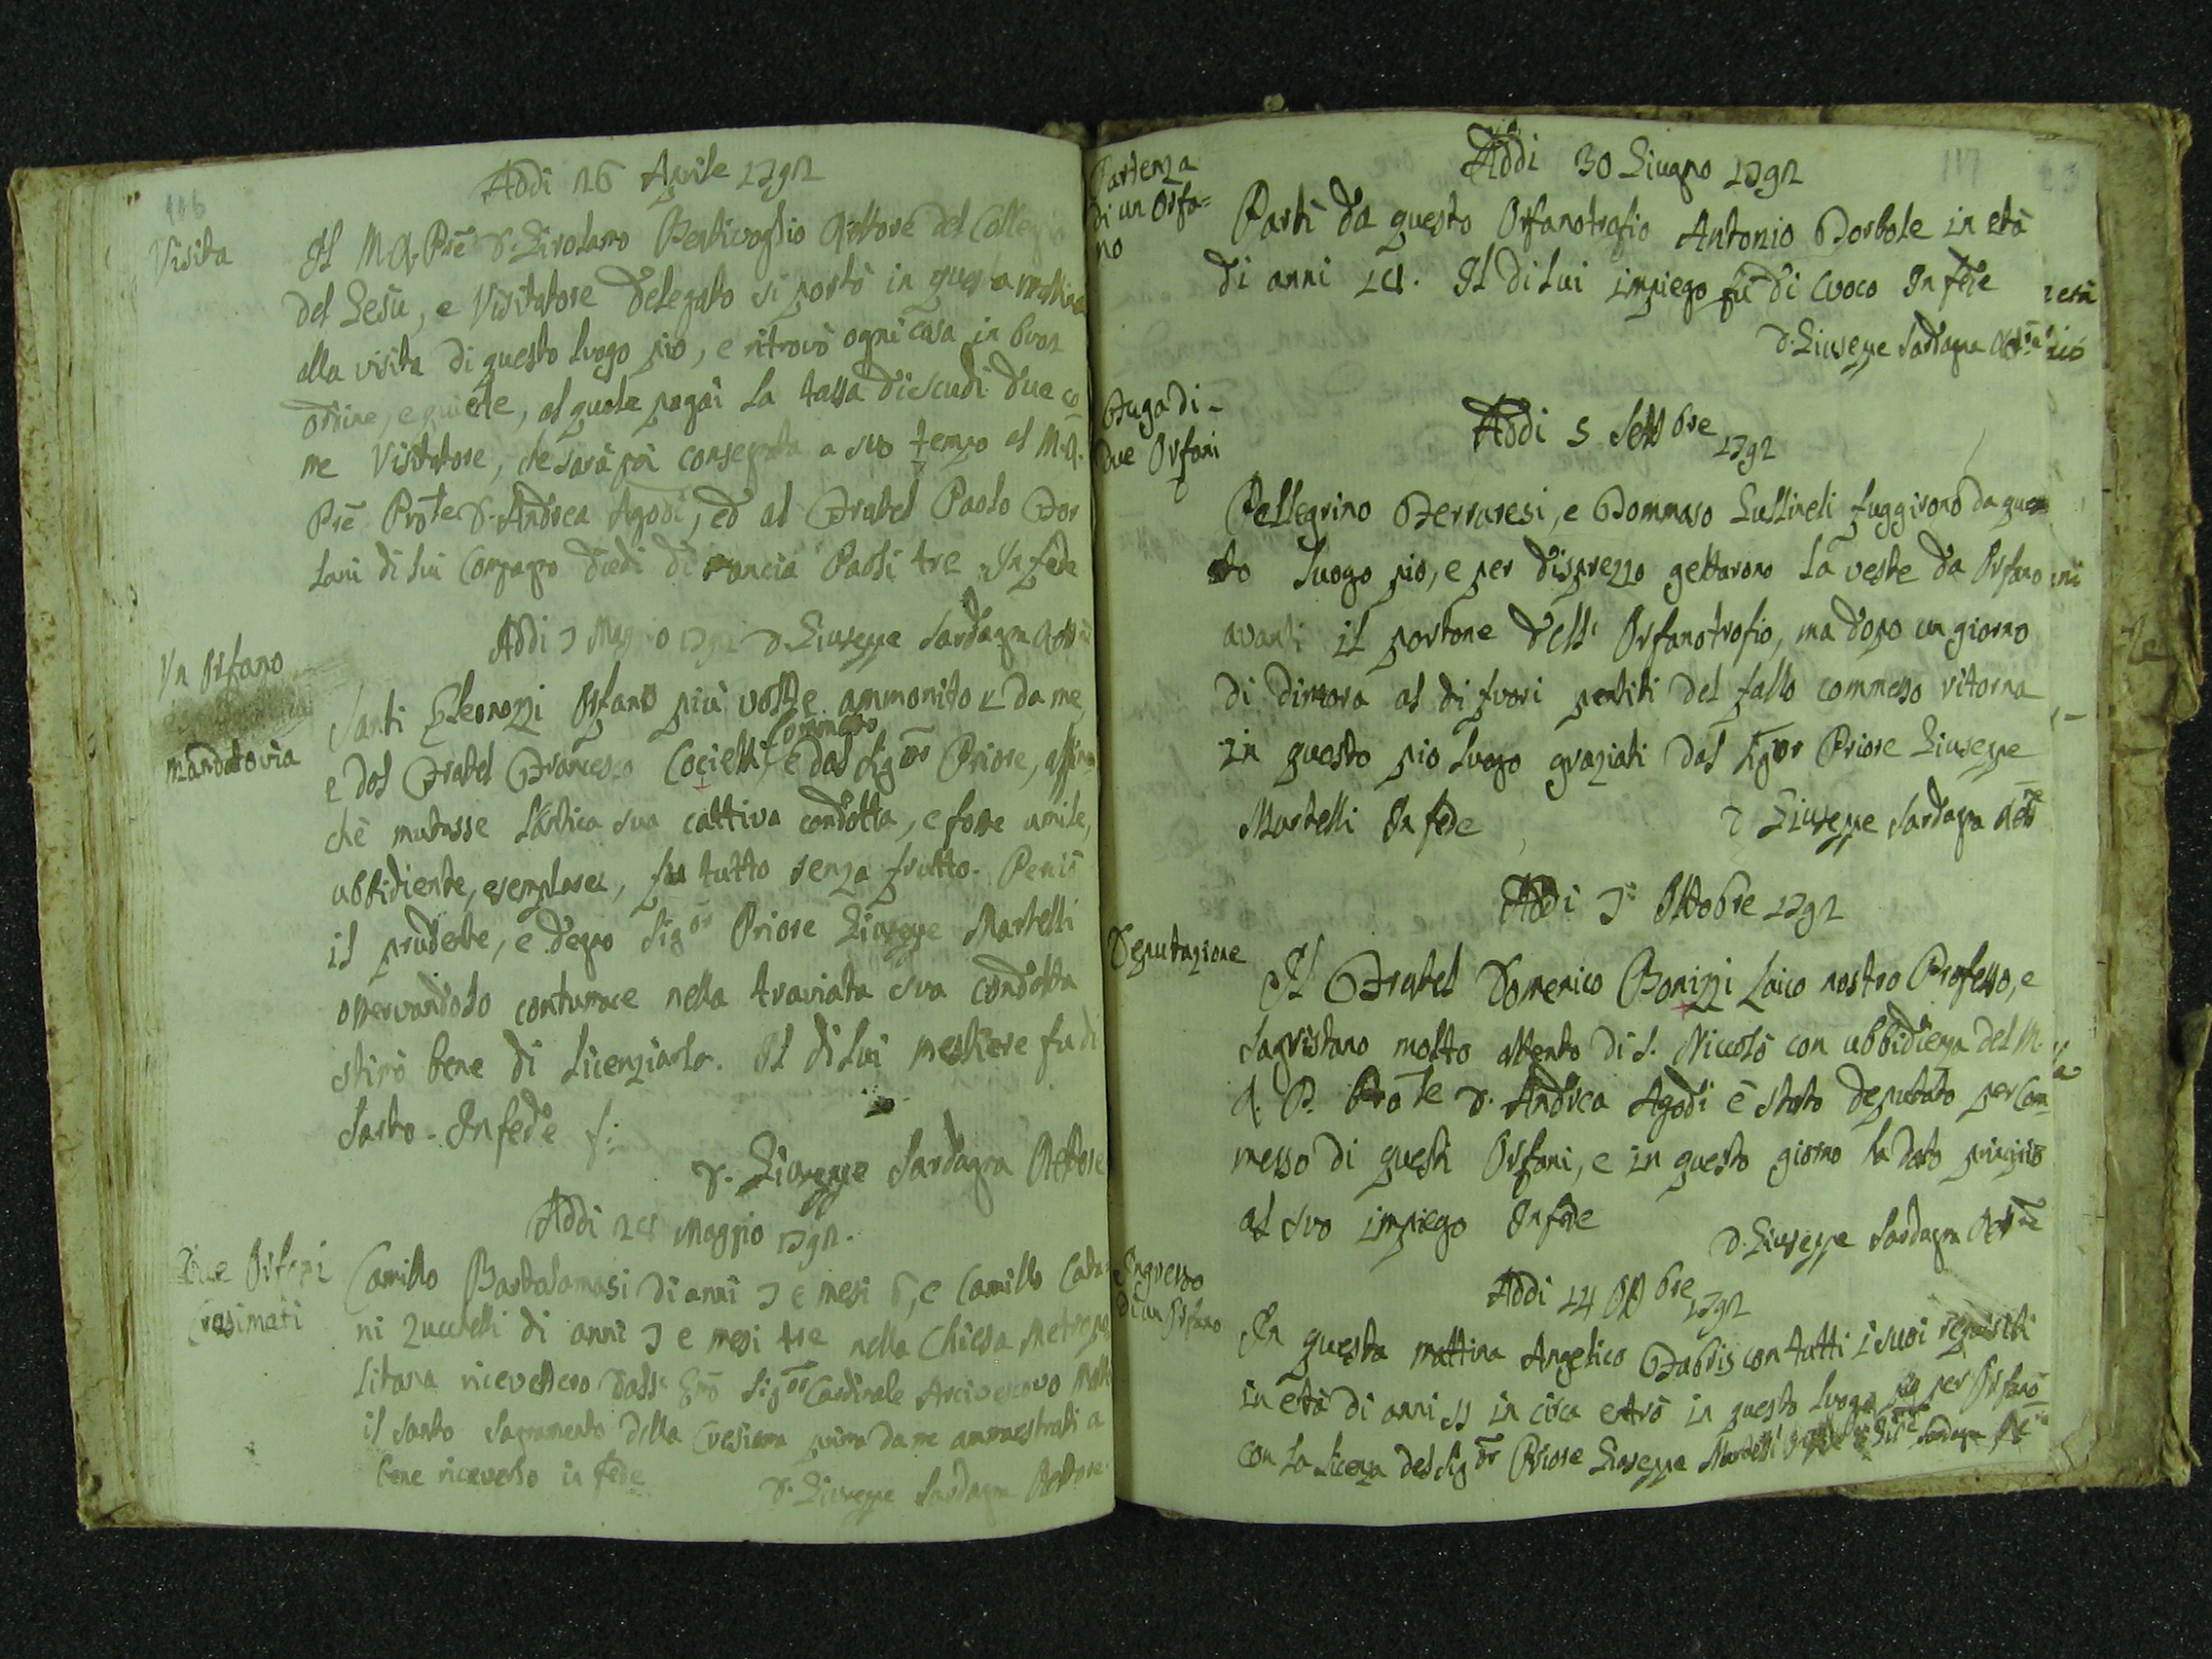 116
Addi 26 Aprile 1792
Visita
Il M. R. Prē D. Girolamo Bentivoglio Rettore del Collegio
del Gesù, e Visitatore delegato si portò in questa mattina
alla visita di questo luogo pio, e ritrovò ogni cosa in buon
ordine, e quiete, al quale pagai la tassa di scudi due co
me Visitatore, che sarà poi consegnata a suo tempo al M. R.
Prē Pro͞te D. Andrea Agodi, ed al Fratel Paolo For
lani di lui Compagno diedi di mancia Paoli tre In fede
D. Giuseppe Sardagna
Addi 7 Maggio 1792
Un Orfano
mandato via
Santi Orfano più volte ammonito da me,
e dal Fratel Francesco Cocielli Commesso, e dal Sigor Priore, affin
chè mutasse l'antica sua cattiva condotta, e fosse umile,
ubbidiente, esemplare, fu tutto senza frutto. Perciò
il prudente, e degno Sigor Priore Giuseppe Martelli
osservandolo contumace nella traviata sua condotta
stimò bene di licenziarlo. Il di lui mestiere fu di
Sarto. In fede
D. Giuseppe Sardagna Rettore
Addi 24 Maggio 1792.
Due Orfani
Cresimati
Camillo Bartolomasi di anni 7 e mesi 6, e Camillo Cata
ni Zucchelli di anni 7 e mesi tre nella Chiesa Metropo
litana ricevettero dall' Emo Sigor Cardinale Arcivescovo
il Santo Sagramento della Cresima prima da me ammaestrati a
bene riceverlo in fede
D. Giuseppe Sardagna Rettore
117
Addi 30 Giugno 1792
Partenza
di un Orfa=
no
Partì da questo Orfanotrofio Antonio Forbole in età
di anni 24. Il di lui impiego fù di Cuoco In fede
D. Giuseppe Sardagna
Addi 5 Settbre 1792
Fuga di
due Orfani
Pellegrino Ferraresi, e Tommaso Gullineli fuggirono da que
sto luogo pio, e per disprezzo gettarono la veste da Orfano
avanti il portone dell' Orfanotrofio, ma dopo un giorno
di dimora al di fuori pentiti del fallo commesso ritorna
in questo pio luogo graziati dal Sigor Priore Giuseppe
Martelli In fede
D Giuseppe Sardagna
Addi 7 Ottobre 1792
Deputazione
Il Fratel Domenico Bonizzi Laico nostro Professo, e
Sagristano molto attento di S. Niccolò con ubbidienza del M.
R. P. Pro͞te D. Andrea Agodi è stato deputato per Com
messo di questi Orfani, e in questo giorno ha dato principio
al suo impiego In fede
D. Giuseppe Sardagna
Addi 14 bre 1792
Ingresso
di un Orfano
In questa mattina Angelico Fabris con tutti i suoi requisiti
in età di anni 11 in circa entrò in questo luogo pio per Orfano
con la licenza del Sigor Priore Giuseppe Martelli Sardagna